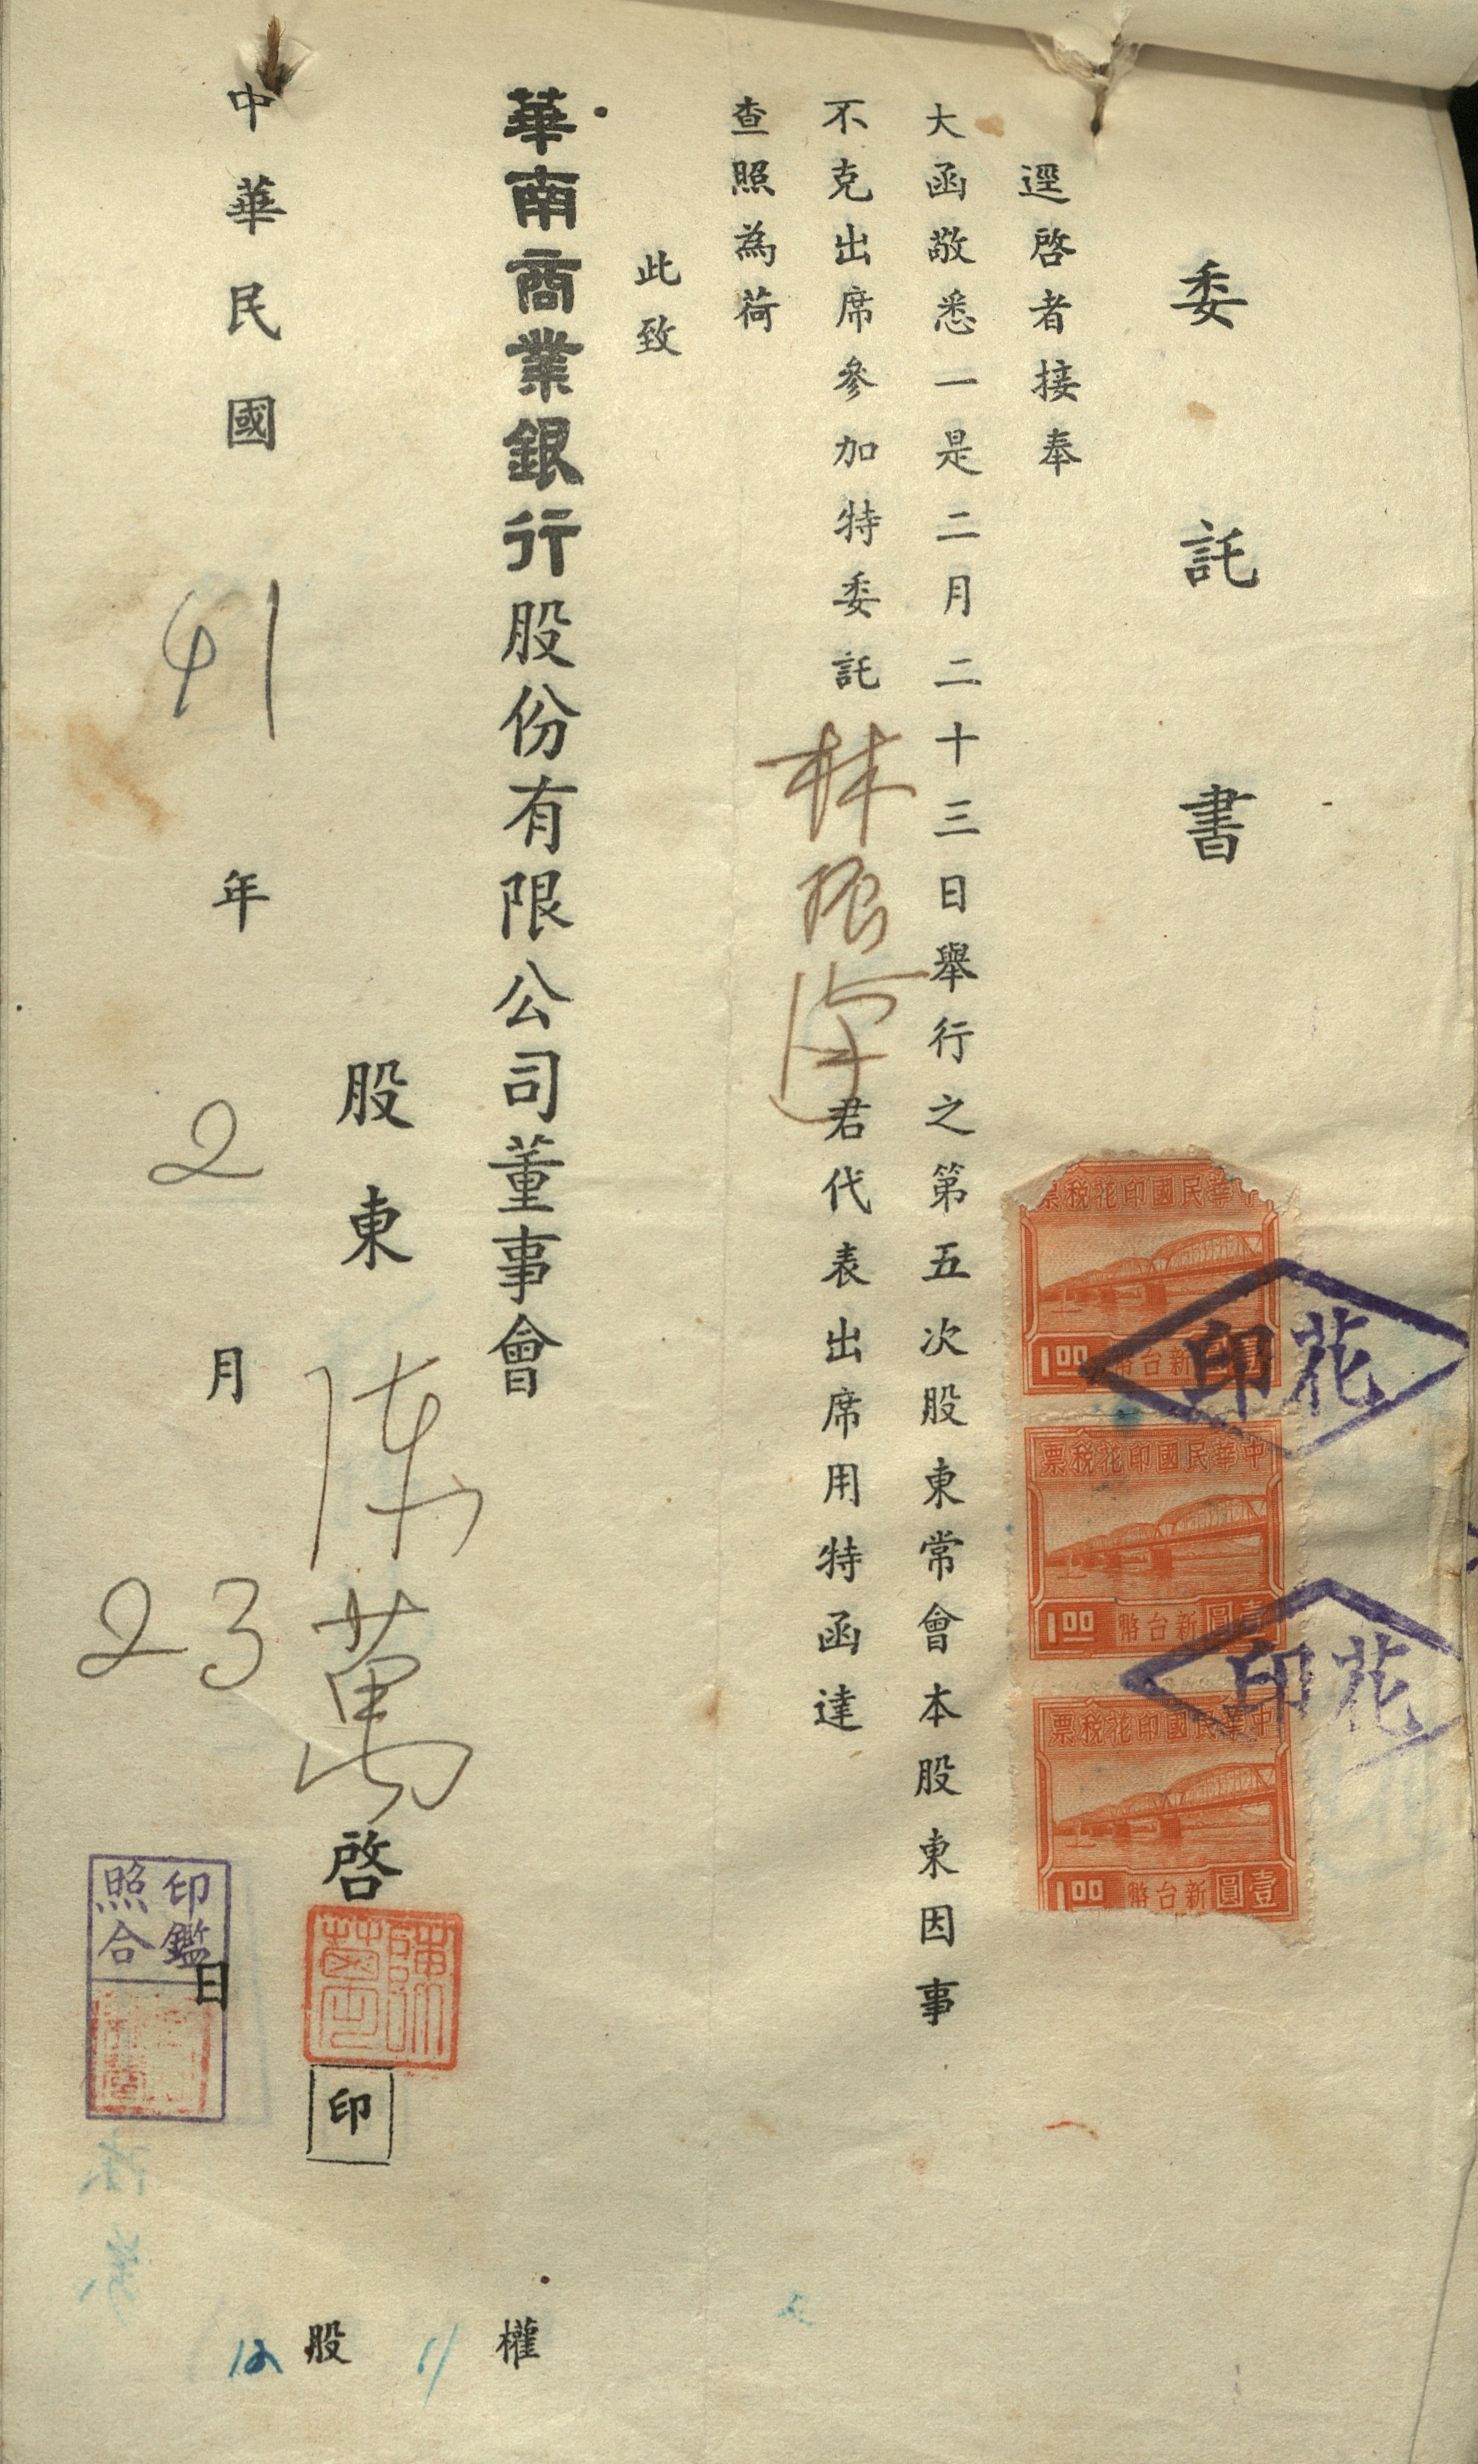 委託書
逕啓者接奉
大函敬悉一是二月二十三日舉行之第五次股東常會本股東因事
不克出席參加特委託林振 君代表出席用特函達
查照為荷
此致
華南商業銀行股份有限公司董事會
股東 陳萬 啓
陳萬
印
中華民國 41 年 2 月 23 日
印鑑
照合
權
股
票税花印國民華
1.00 幣台新圓壹
票税花印國民華中
1.00 幣台新圓壹
票税花印國民華中
1.00 幣台新圓壹
印花
印花